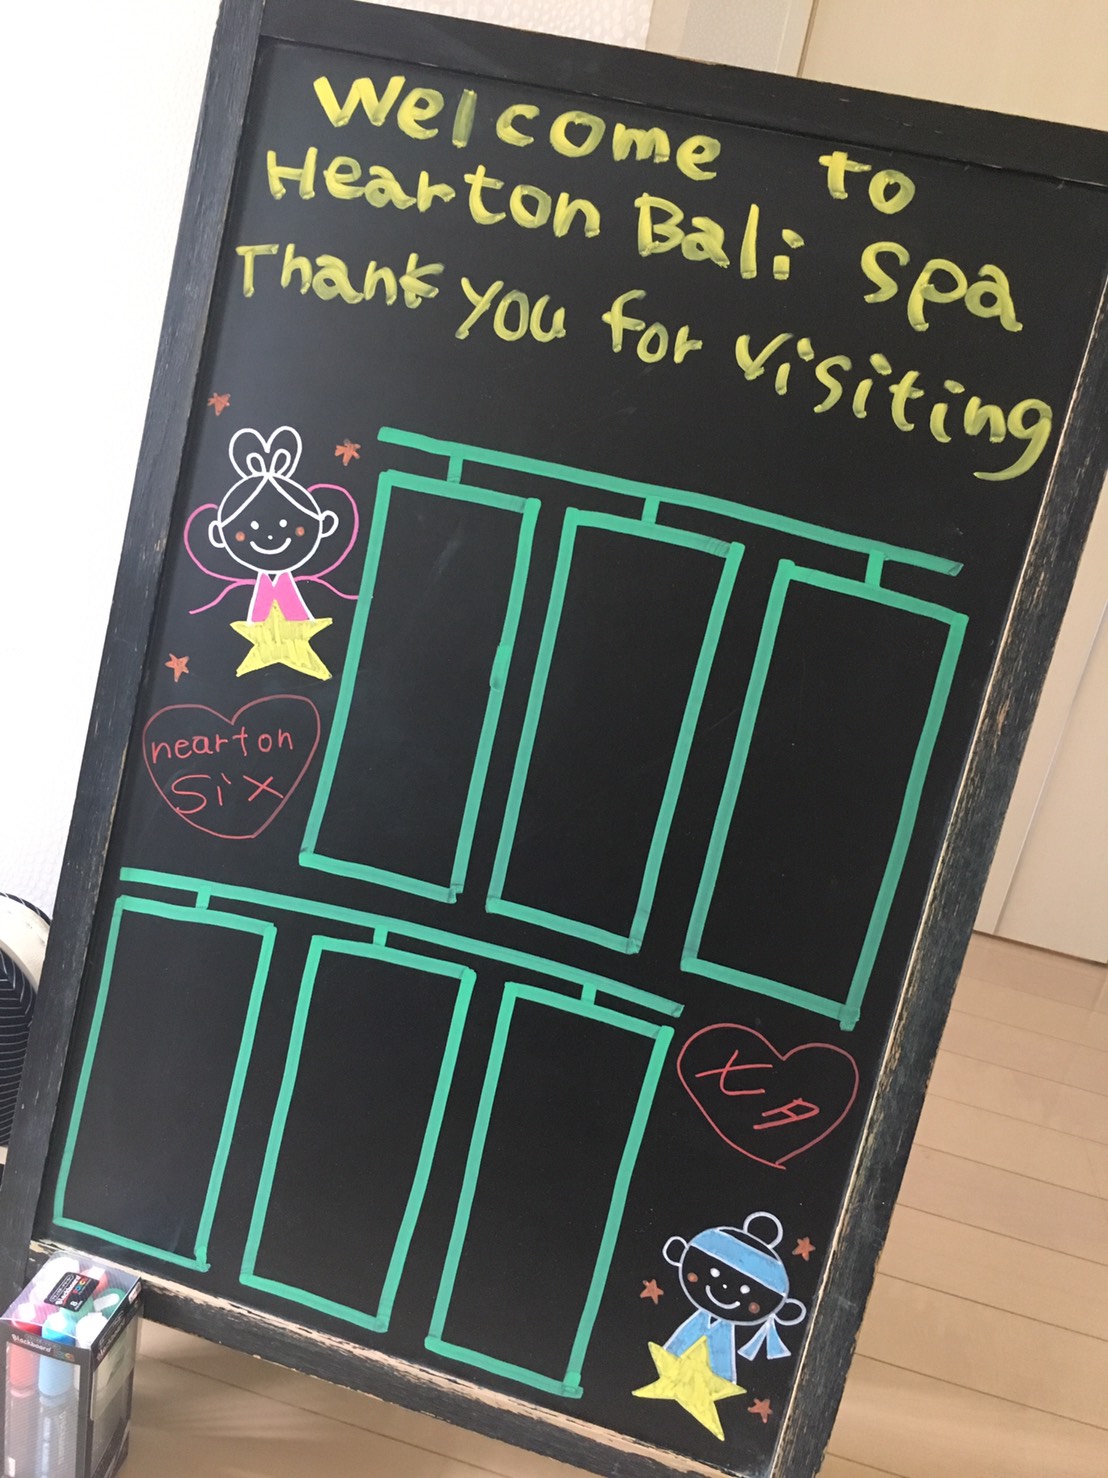 Welcome to
Hearton Bali Spa
Thank you for visiting
nearton
Six
七夕
Blackboard